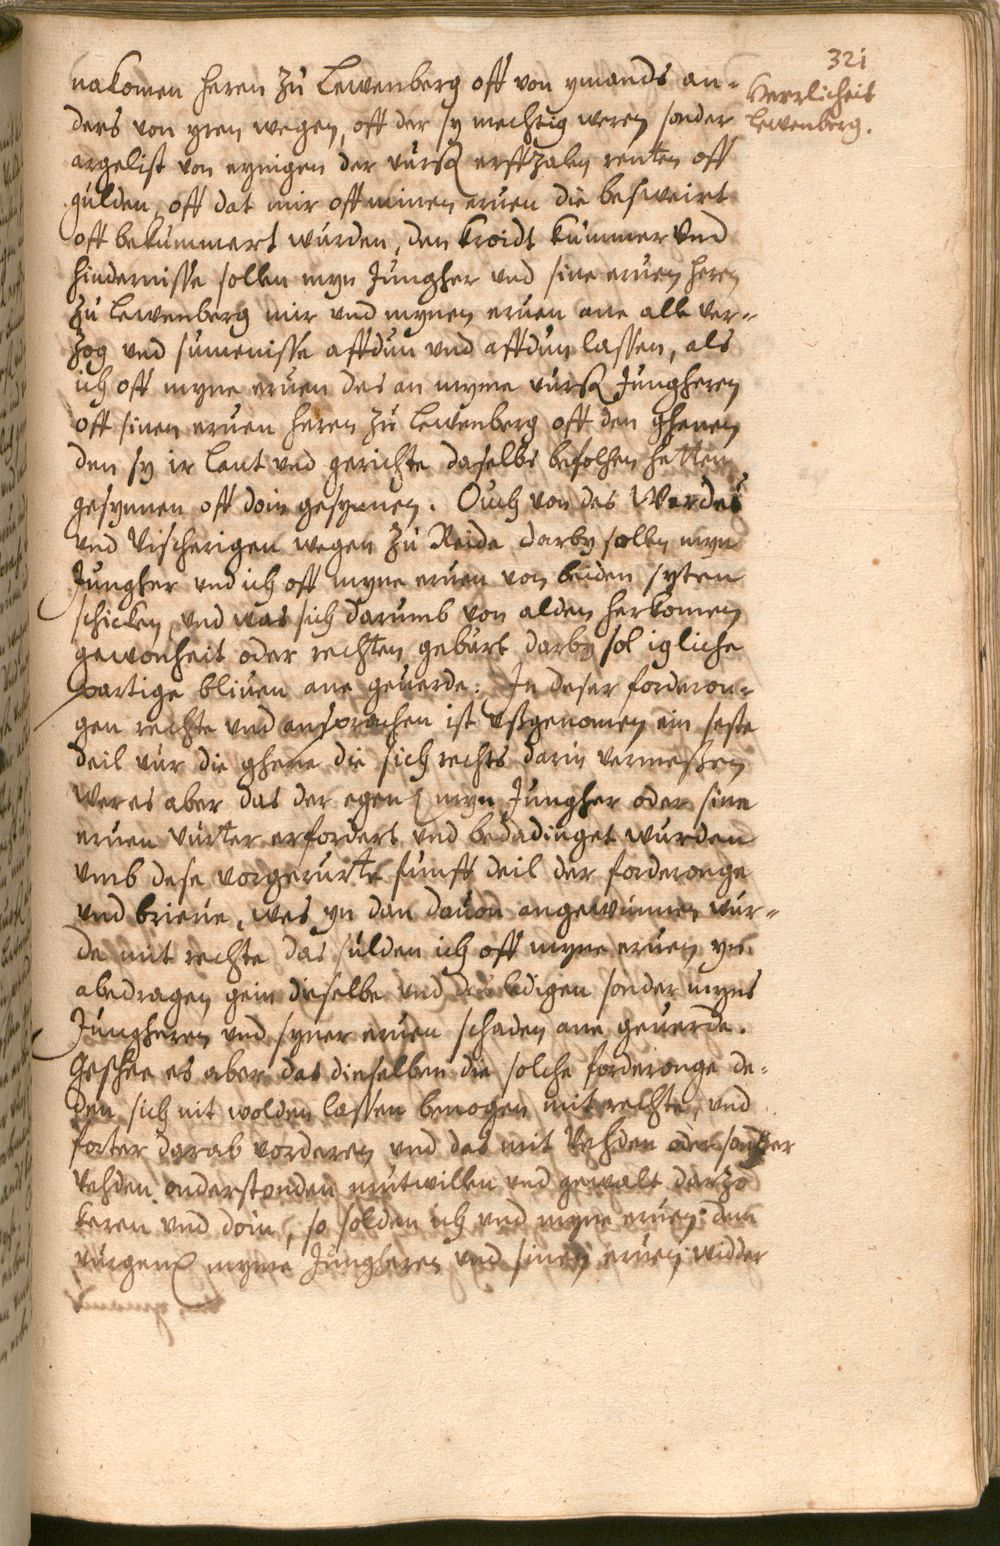 321
Herrlicheit
Lewenberg.
nakomen heren zu Lewenberg off von ymands an-
ders von yren wegen, off der sy mechtig weren sonder
argelist von eynigen der vursch erffzalen renten off
gulden, off dat mir off minen eruen die besweirt
off bekummert wurden, den kroidt kummer vnd
hindernisse sollen myn Jungher vnd sine eruen heren
zu Lewenberg mir vnd mynen eruen ane alle ver-
zog vnd sumenisse affdun vnd affdun lassen, als
ich off myne eruen des an myme vursch Jungheren
off sinen eruen heren zu Lewenberg off den ghenen
den sy ir lant vnd gerichte daselbs befolhen hetten
gesynnen off doin gesynnen. Ouch von des Werdes
vnd Vischerigen wegen zu Reide darby sollen myn
Jungher vnd ich off myne eruen von beiden syten
schicken, vnd was sich darumb von alden herkomen
gewonheit oder rechten geburt darby sol igliche
partige bliuen ane geuerde: In deser forderon-
gen rechte vnd ansprachen ist vßgenomen ein seste
deil vur die ghene die sich rechts darin vermeßen
Weres aber das der egen myn Jungher oder sine
eruen vurter erfordert vnd bedadinget wurden
vmb dese vorgerurte funff deil der forderonge
vnd brieue, wes yn dan dauon angewunnen wur-
de mit rechte das sulden ich off myne eruen yn
abedragen gein dieselbe vnd des ledigen sonder myns
Jungheren vnd syner eruen schaden ane geuerde.
Geschee es aber das dieselben die solche forderonge de-
den sich nit wolden lassen benogen mit rechte, vnd
forter darab vorderen vnd das mit Vehden oder sonder
Vehden onderstonden mutwillen vnd gewalt darzo
keren vnd doin, so solden ich vnd myne eruen dem
vurgen myme Jungheren vnd sinen eruen widder